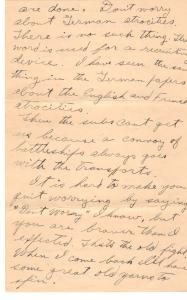 are done. Don't worry
about German atrocities.
There is no such thing. The
word is used for a recruiting
device. I have seen the same
thing in the German papers
about the English and French
atrocities.
Then the subs cant get
us because a convoy of
battleships always goes
with the transports.
It is hard to make you
quit worrying by saying
"Dont Worry" I know, but
you are braver than I
expected. Thats the old fight.
When I come back I'll have
some great old yarns to
spin.